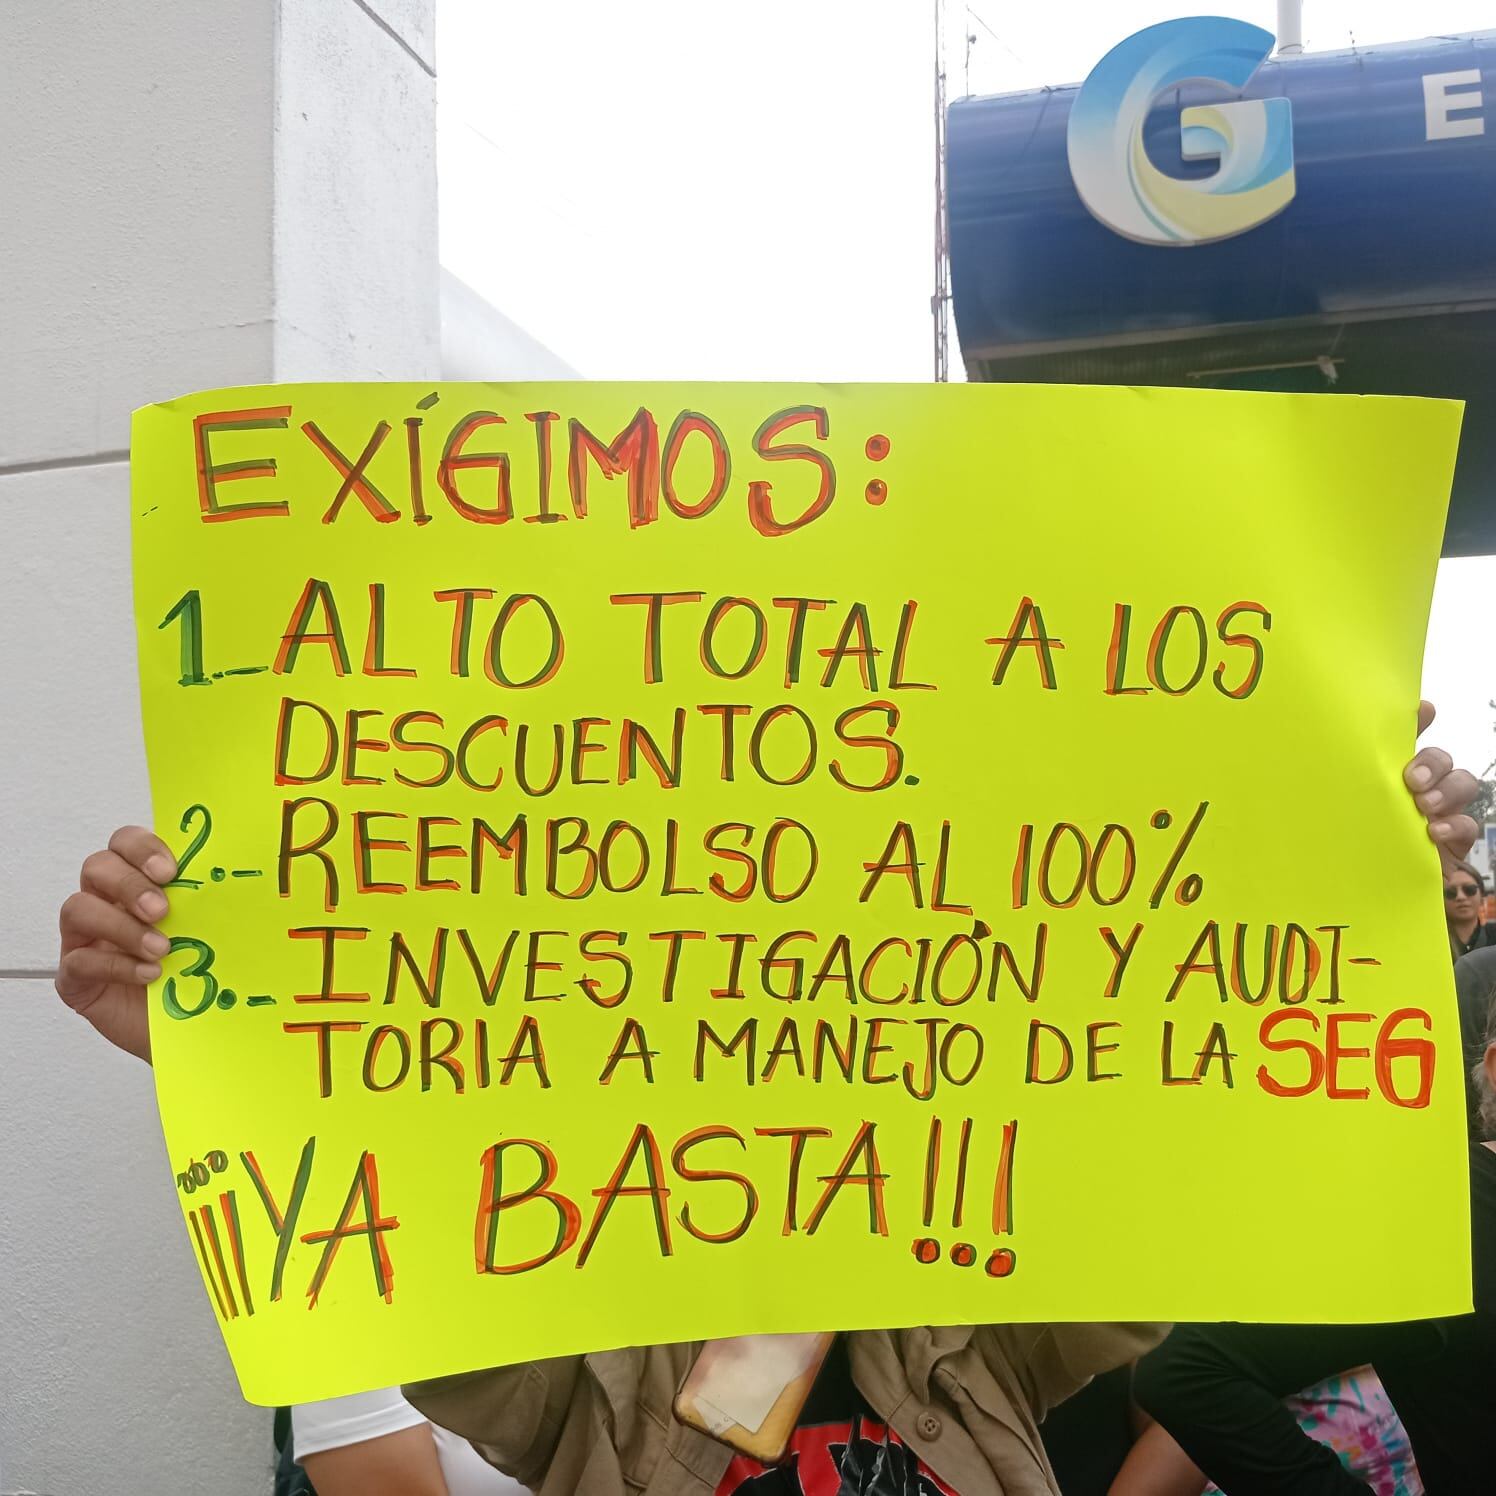 G E
EXÍGIMOS:
1.- ALTO TOTAL A LOS
DESCUENTOS.
2.- REEMBOLSO AL 100%
3.- INVESTIGACIÓN Y AUDI-
TORIA A MANEJO DE LA SEG
¡¡¡YA BASTA!!!